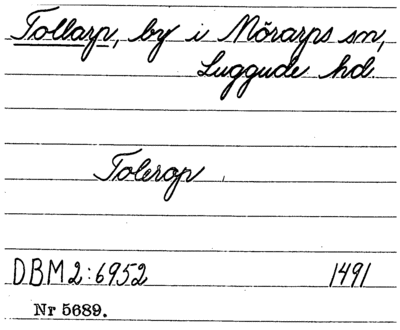 Tollarp, by i Mörarps sn,
Luggude hd
Tolerop
DBM 2:6952 1491
Nr 5689.